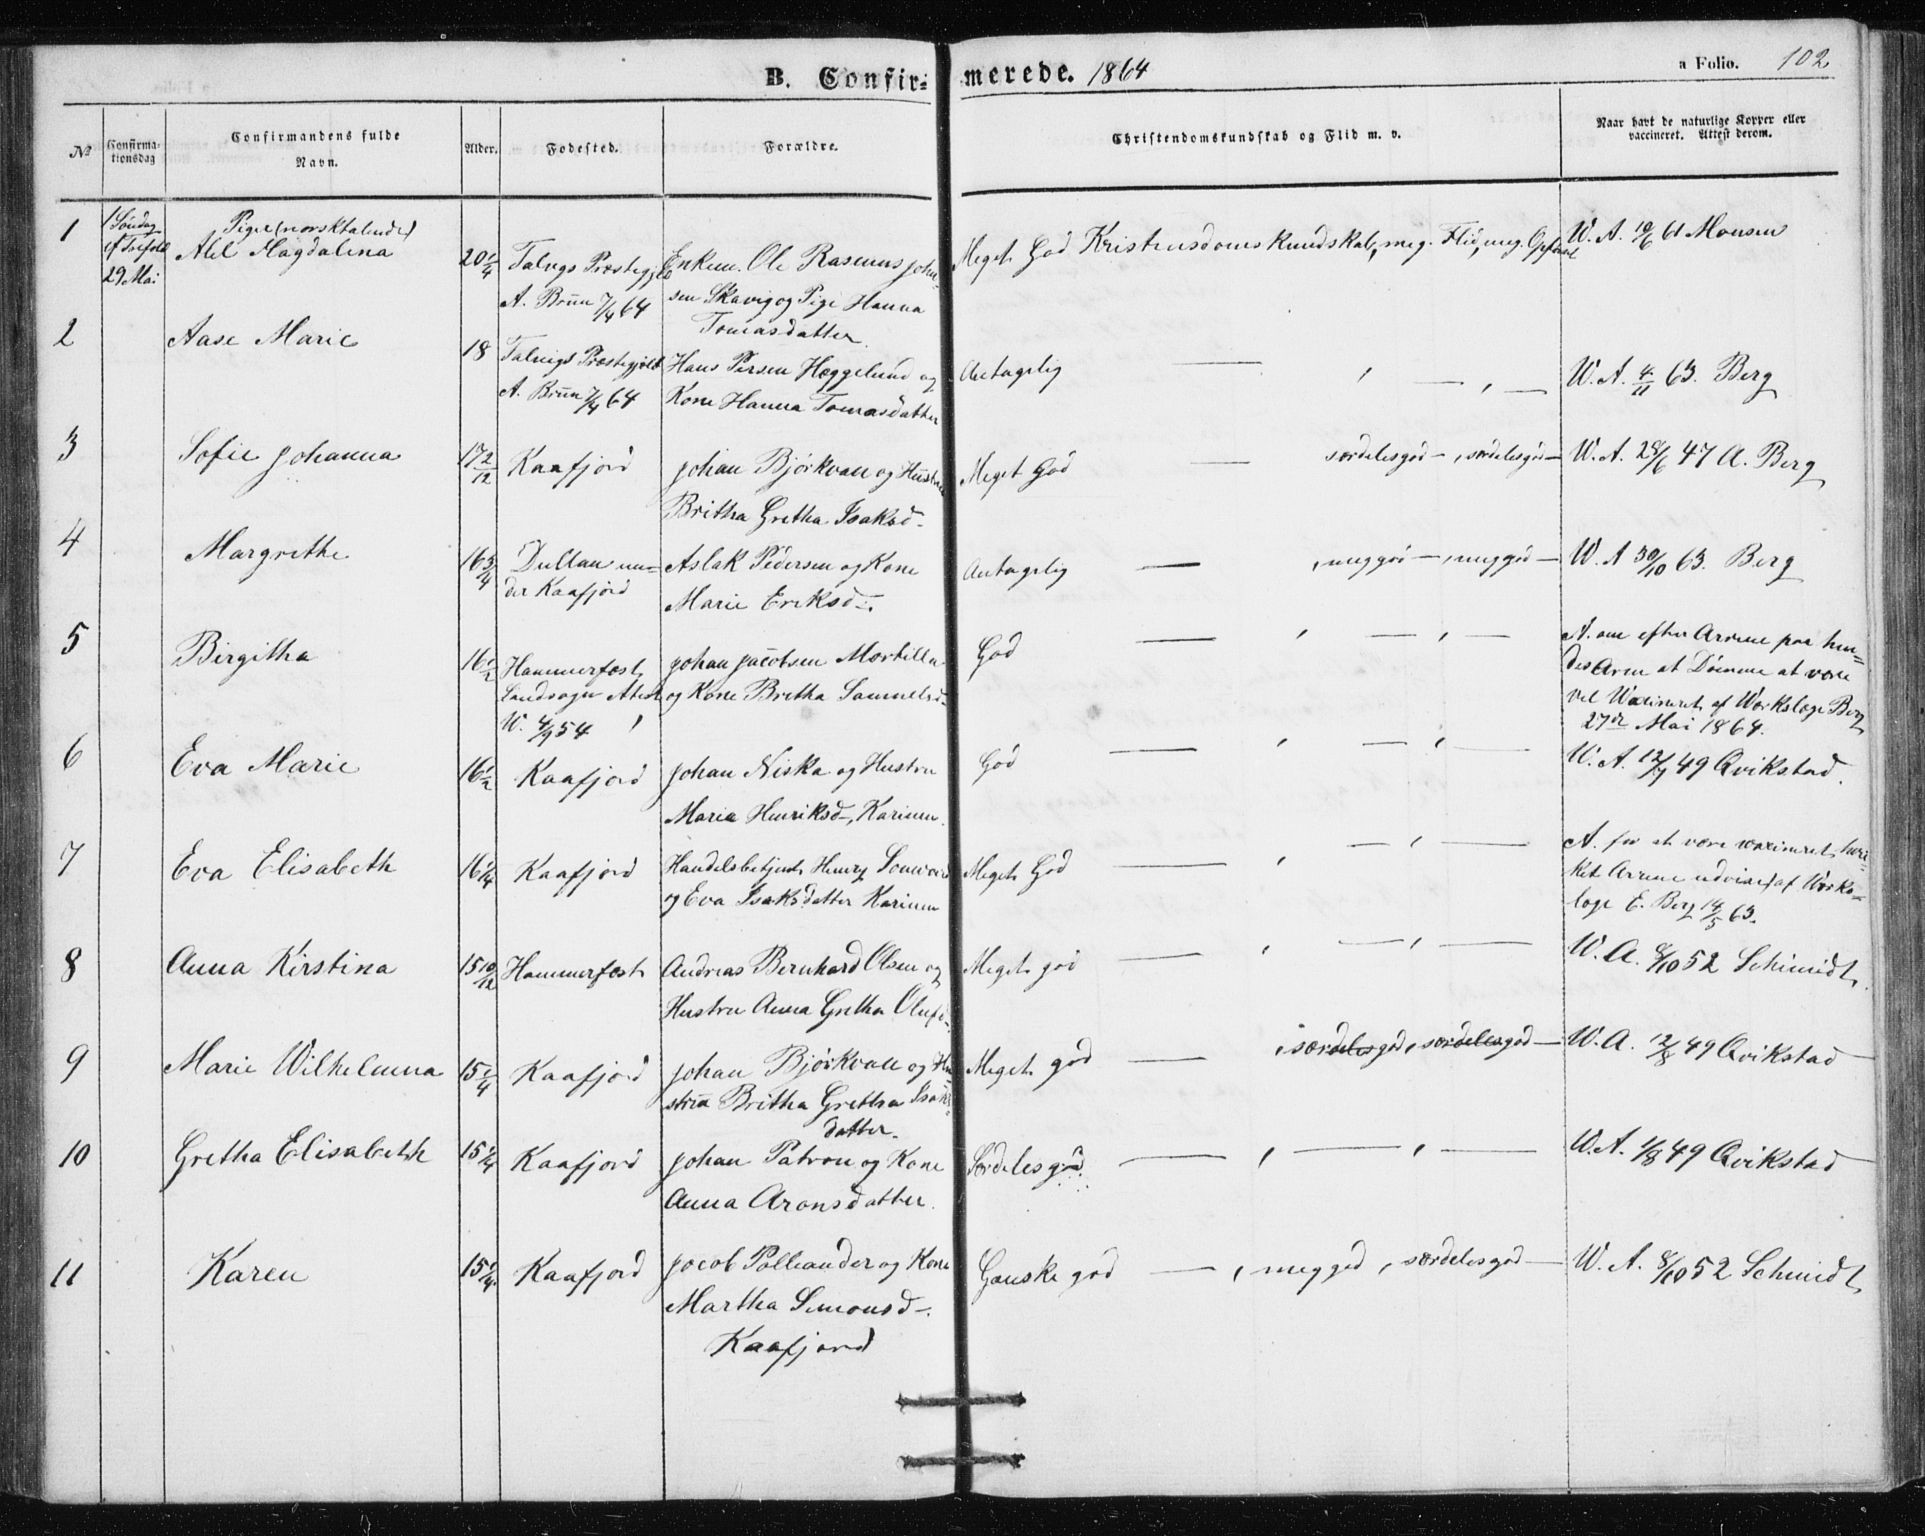 B. Confir=merede. 1864
a Folio. 102
No Confirma-tionsdag Confirmandens fulde Navn. Alder. Fødested. Forældre. Christendomskundskab og Flid m. v. Naar havt de naturlige Kopper eller vaccineret. Attest derom.
1 1 Søndag ef Trefold 29 Mai
Piger (norsktalende)
Abel Magdalena 20 1/4 Talvigs Præstegjeld Enkem. Ole Rasmus John= Meget God Kristensdoms Kundskab, meg. Flid, meg. Opførsel W. A. 10/6 61 Monsen
A. Brun 7/4 64 sen Skavig og Pige Hanna
Tomasdatter
2 Aase Marie 18 Talvigs Præstegjeld Hans Persen Heggelund og Antagelig — , — , — W. A. 4/11 63. Berg
A. Brun 7/4 64 Kone Hanna Tomasdatter
3 Sofie Johanna 17 2/12 Kaafjord Johan Bjørkvall og Hustru Meget God — særdelesgod —, særdelesgod — W. A. 28/6 47 A. Berg
Britha Gretha Isaksd-
4 Margrethe 16 3/4 Dullan un= Aslak Pedersen og Kone Antagelig — , meggod —, meggod — W. A 30/10 63. Berg
der Kaafjord Marie Eriksd-.
5 Birgitha 16 1/2 Hammerfest Johan Jacobsen Mortilla God — , — , — A. om efter Arrene paa hen=
Landsogn Atest og Kone Bretha Samuelsd- des Arm at Dømme at være
W. 4/9 54 vel Waxineret af Værkslæge Berg
27de Mai 1864.
6 Eva Marie 16 1/2 Kaafjord Johan Niska og Hustru God — , — , — W. A. 12/7 49 Qvikstad.
Maria Henriksd-, Karinen.
7 Eva Elisabeth 16 1/4 Kaafjord Handelsbetjent Henry Meget God — , — , — A. for at være vaxineret, hvil=
og Eva Isaksdatter Karinen ket Arrene udviser af Værks=
læge E. Berg 14/5 63.
8 Anna Kirstina 15 10/12 Hammerfest Andreas Bernhard Olsen og Meget god — , — , — W. A. 8/10 52 Schmidt.
Hustru Anna Gretha Olufs-
9 Marie Wilhelmina 15 1/4 Kaafjord Johan Bjørkvall og Hu= Meget god — , særdelesgod, særdelesgod — W. A. 12/8 49 Qvikstad
stru Britha Gretha Isaks=
datter.
10 Gretha Elisabeth 15 1/4 Kaafjord Johan Patron og Kone Særdelesgod. — , — , — W. A. 1/8 49 Qvikstad
Anna Aronsdatter.
11 Karen 15 1/4 Kaafjord Jacob Palleander og Kone Ganske god — , meggod , særdelesgod — W. A. 8/10 52 Schmidt
Martha Simonsd-.
Kaafjord